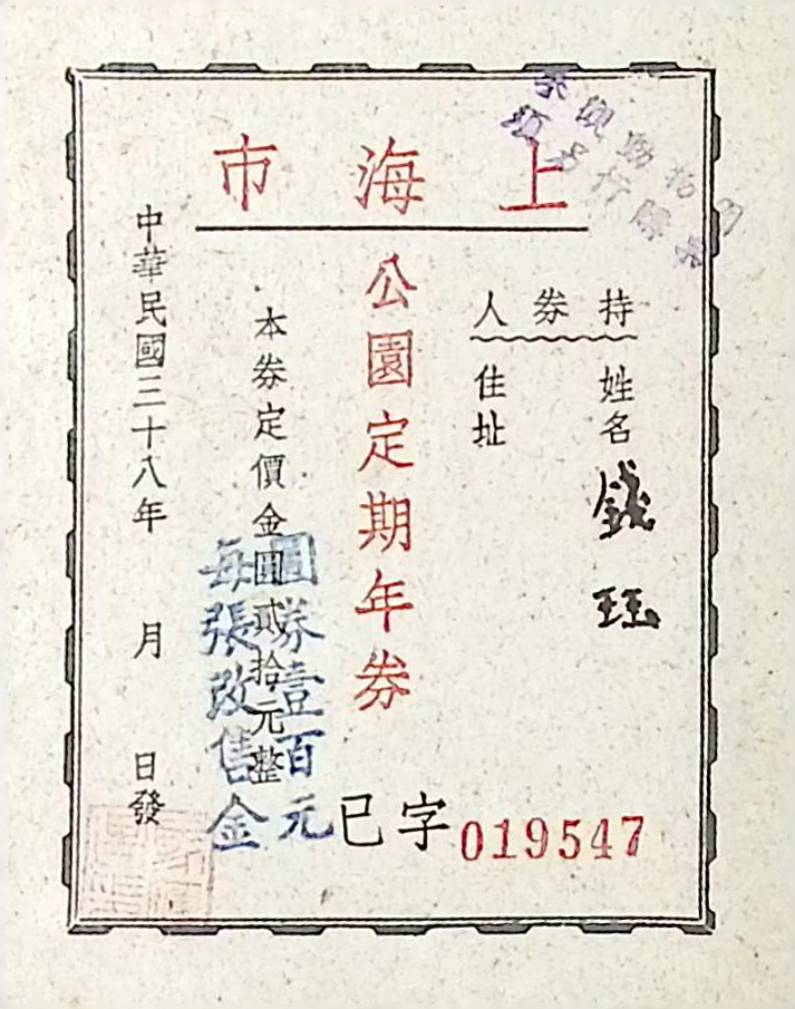 參觀動物園
須另行購票
上海市
持券人
姓名 錢珏
住址
公園定期年券
本券定價金圓貳拾元整
每張改售金
圓券壹百元
中華民國三十八年 月 日發
已字 019547